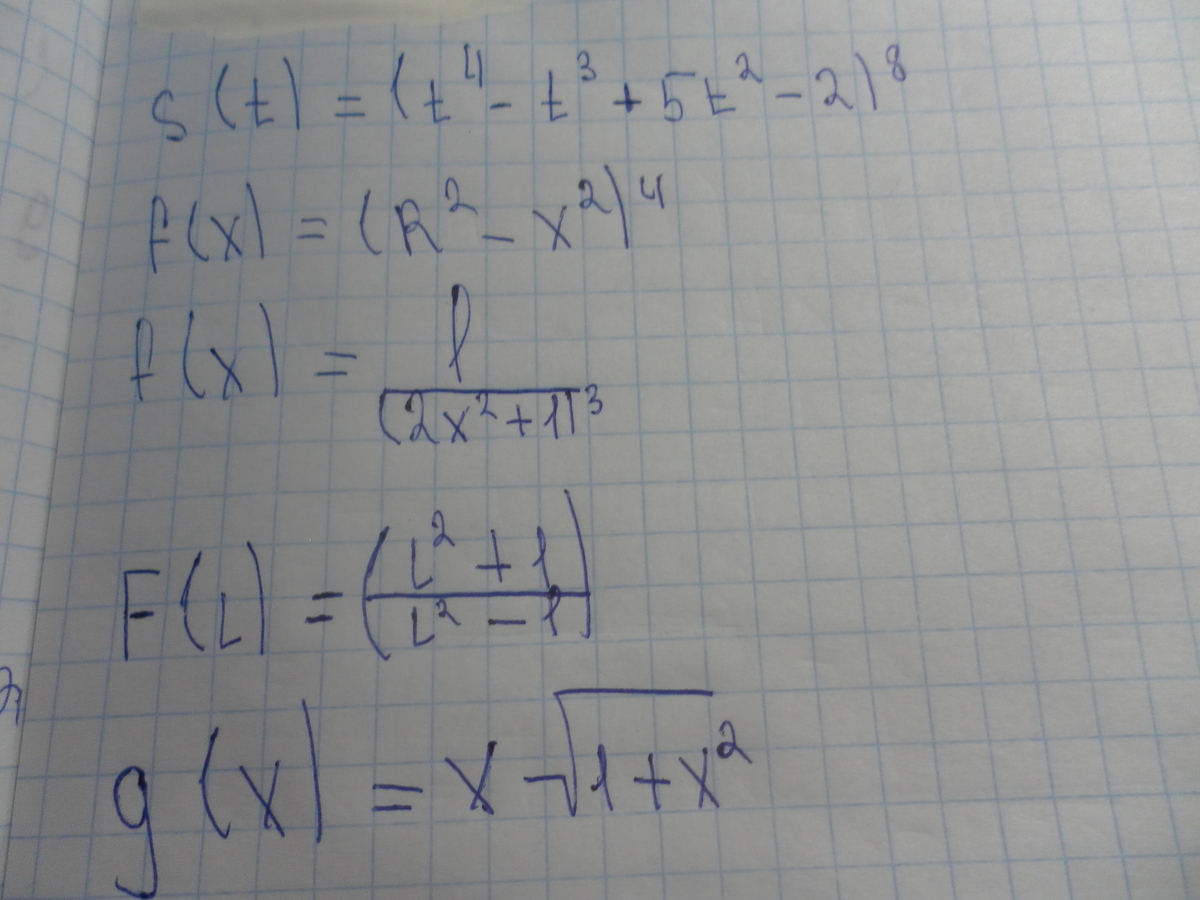 S(t) = (t⁴ - t³ + 5t² - 2)⁸
f(x) = (R² - x²)⁴
f(x) = 1/(2x² + 1)³
F(L) = (L² + 1 / L² - 1)
g(x) = x √1 + x²